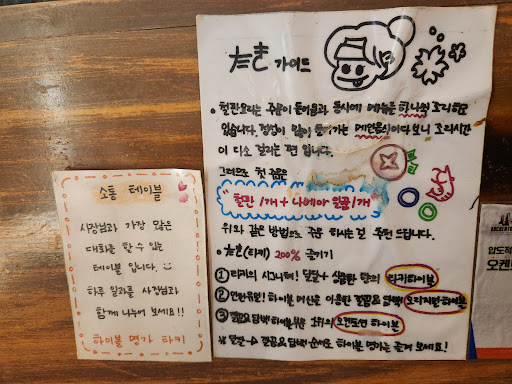 소통 테이블
사장님과 가장 많은
대화를 할 수 있는
테이블 입니다.
하루 일과를 사장님과
함께 나누어 보세요!!
하이볼 명가 타키
가이드
철판요리는 주문이 들어옴과 동시에 메뉴를 하나씩 조리하고
있습니다. 정성이 많이 들어가는 메인음식이다 보니 조리시간
이 다소 걸리는 편 입니다.
그러므로 첫 주문은
"철판 1개 + 나베or 일품 1개
위와 같은 방법으로 주문 하시는 걸 추천 드립니다.
(타키) 200% 즐기기
① 타키의 시그니처! 달달 + 상큼한 맛의 타키하이볼
② 산토리 하이볼 머신을 이용한 깔끔 & 담백! 오리지널하이볼
③ 깔끔 & 담백 하이볼 부문 1위의 오켄토션 하이볼
달달 → 깔끔 & 담백 순서로 하이볼 명가를 즐겨 보세요!
압도적
오켄